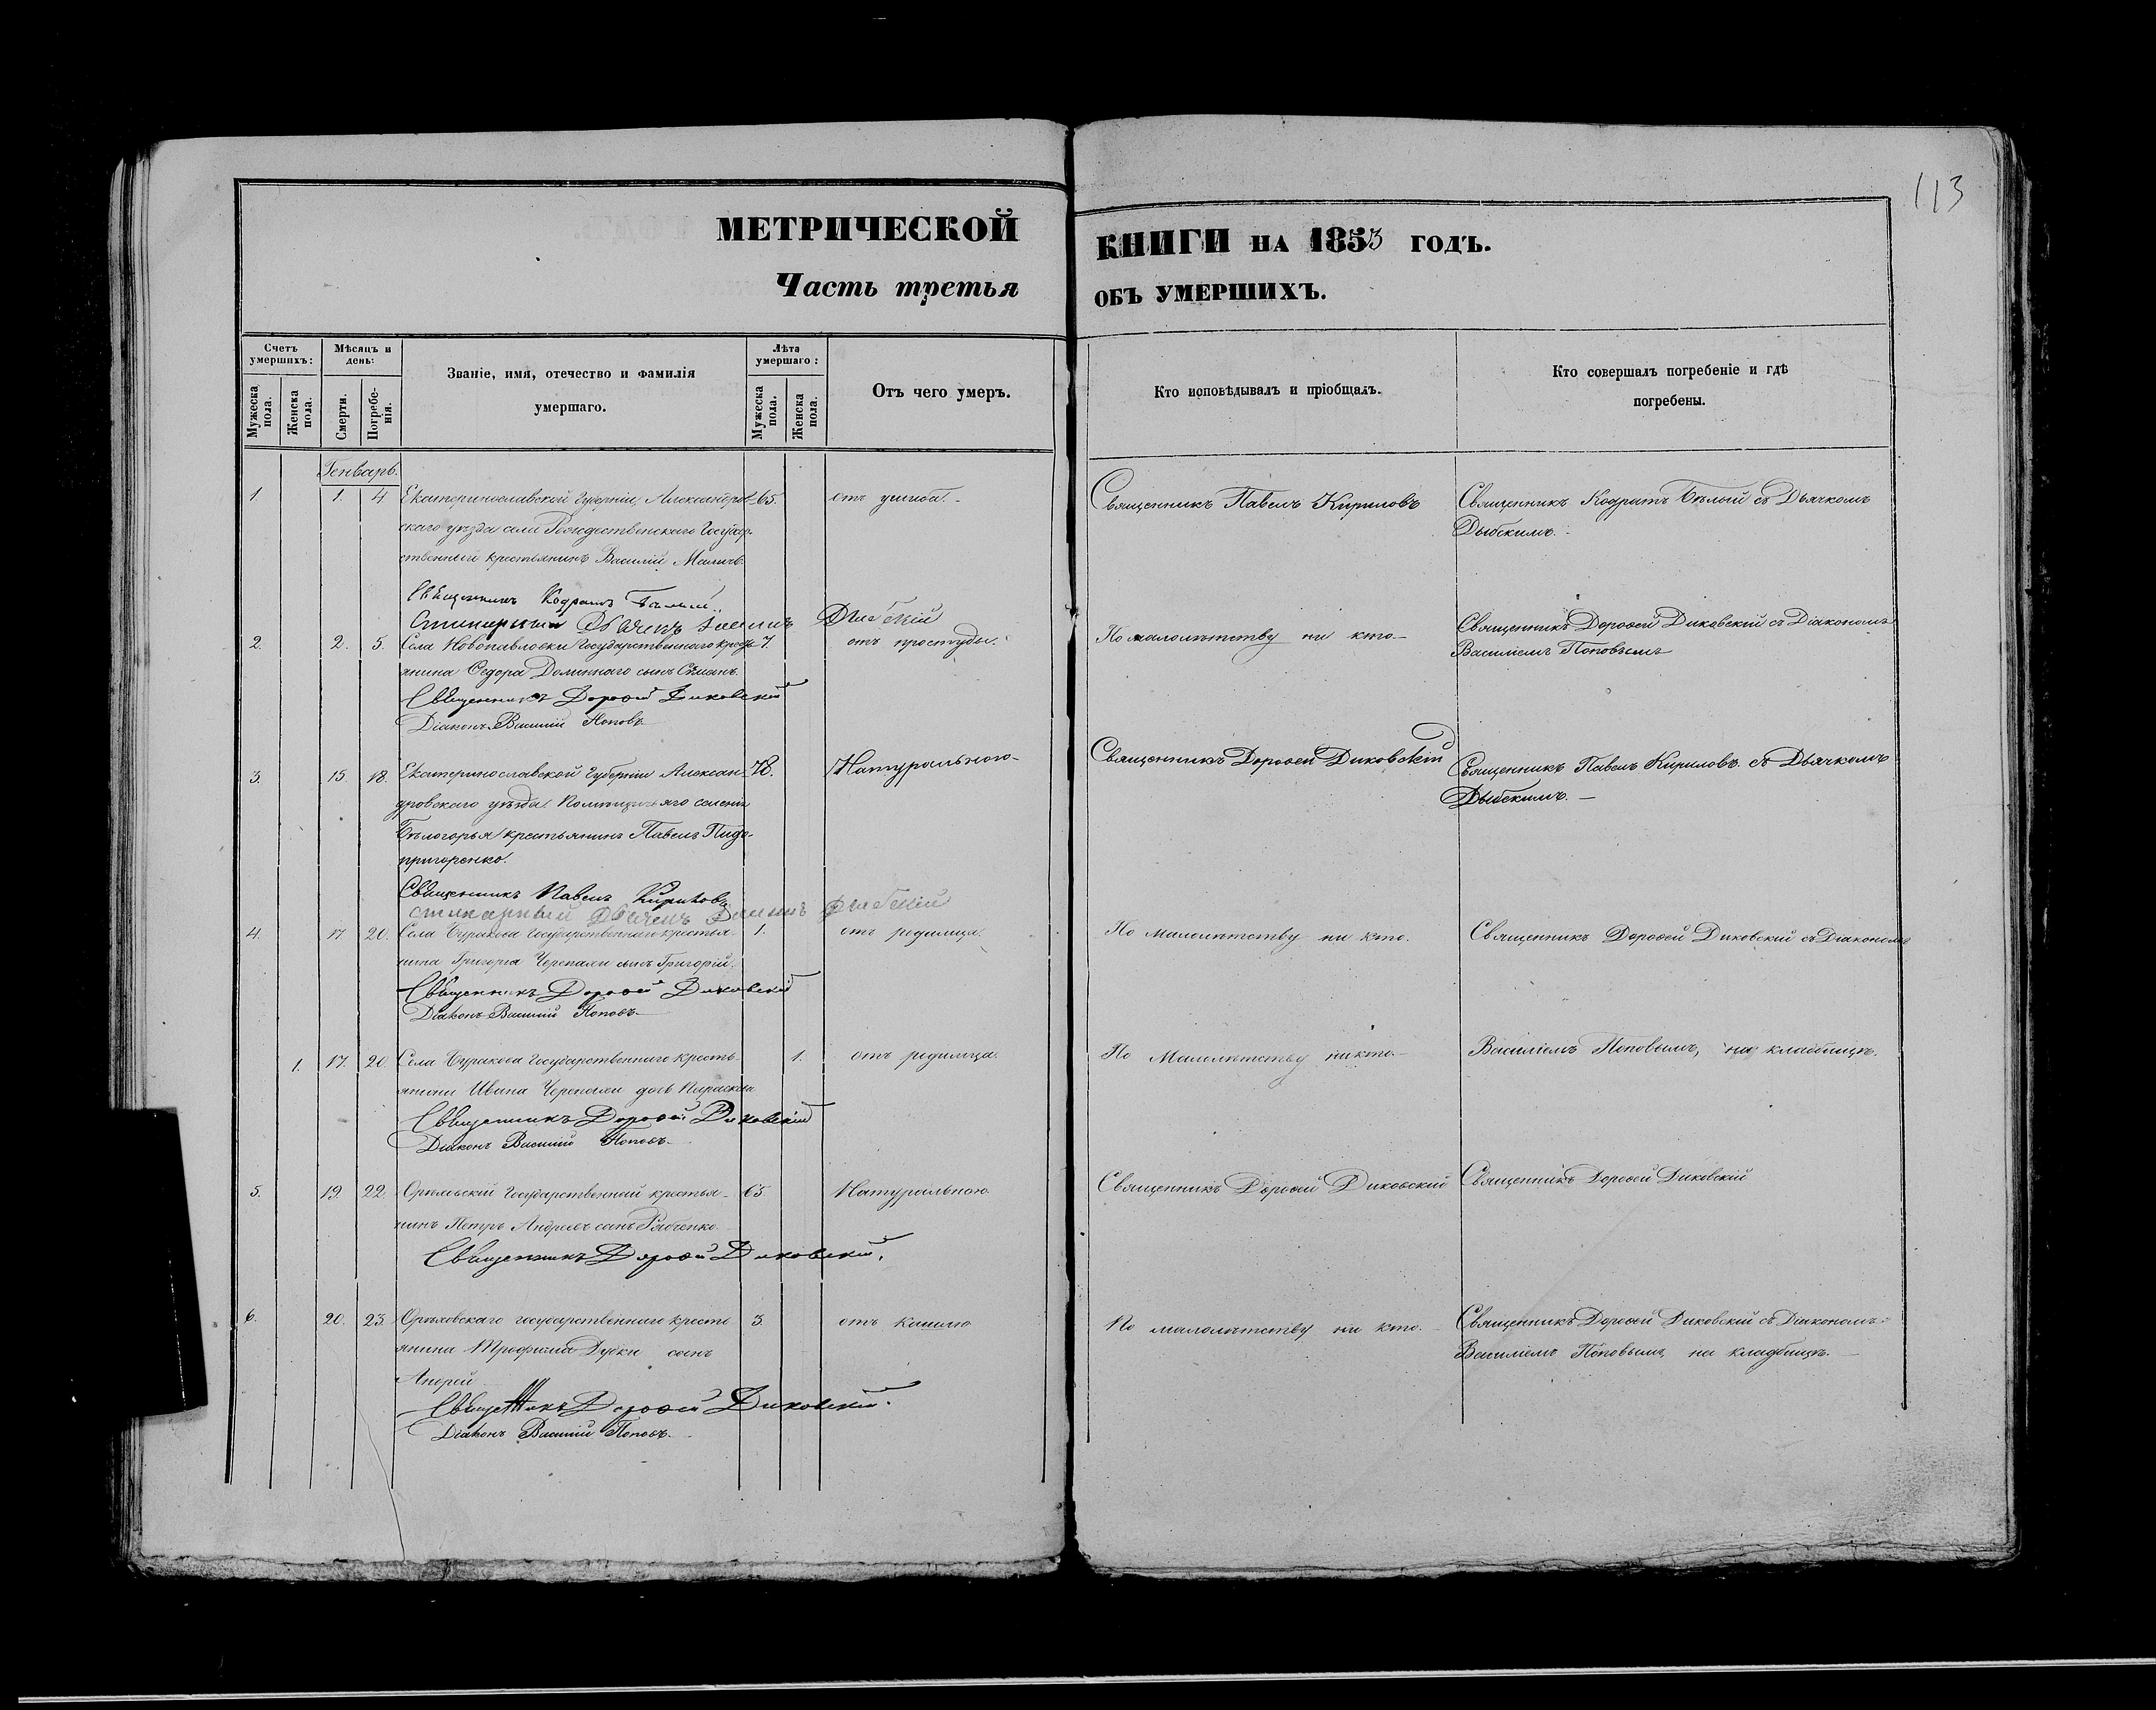 113
МЕТРИЧЕСКОЙ КНИГИ НА 1853 ГОДЪ.
Часть третья ОБЪ УМЕРШИХЪ.
Счетъ умершихъ:
Мужеска пола.
Женска пола.
Мѣсяцъ и день:
Смерти.
Погребенія.
Званіе, имя, отечество и фамилія
умершаго.
Лѣта умершаго:
Мужеска пола.
Женска пола.
Отъ чего умеръ.
Кто исповѣдывалъ и пріобщалъ.
Кто совершалъ погребеніе и гдѣ
погребены.
Генварь.
1. 1. 4 Екатеринославской Губерніи, Александров- 65. отъ Священникъ Павелъ Кириловъ Священникъ Кодратъ Бѣлый съ Дьячкомъ
скаго уѣзда села Рождественскаго Государ-
ственный крестьянинъ Василій
Священникъ Кодратъ Бѣлый
2. 2. 5. Села Новопавловки Государственнаго кресть- 7. отъ простуды. По малолѣтству ни кто. Священникъ Дорофей Диковскій съ Діакономъ
янина Федора сынъ Василіемъ Поповымъ
Священникъ Дорофей Диковскій
Діаконъ Василій Поповъ
3. 15. 18. Екатеринославской Губерніи Алексан- 78. Натуральною Священникъ Дорофей Диковскій Священникъ Павелъ Кириловъ съ Дьячкомъ
дровскаго уѣзда
Бѣлогорья крестьянинъ Павелъ Пидо-
пригоренко.
Священникъ Павелъ Кириловъ
стихарный Дьячекъ
4. 17. 20. Села Государственнаго крестья- 1. отъ родимца. По малолѣтству ни кто. Священникъ Дорофей Диковскій съ Діакономъ
нина Григорія сынъ Григорій.
Священникъ Дорофей Диковскій
Діаконъ Василій Поповъ
1. 17. 20. Села Государственнаго кресть- 1. отъ родимца. По Малолѣтству ни кто. Василіемъ Поповымъ, на кладбищѣ.
янина Ивана дочь Параскева
Священникъ Дорофей Диковскій
Діаконъ Василій Поповъ
5. 19. 22. Государственный крестья- 65. Натуральною Священникъ Дорофей Диковскій Священникъ Дорофей Диковскій
нинъ Петръ Андреевъ сынъ
Священникъ Дорофей Диковскій.
6. 20. 23. Орѣховскаго государственнаго кресть- 3. отъ кашлю По малолѣтству ни кто. Священникъ Дорофей Диковскій съ Діакономъ
янина Трофима сынъ Василіемъ Поповымъ, на кладбищѣ.
Андрей
Священникъ Дорофей Диковскій.
Діаконъ Василій Поповъ.